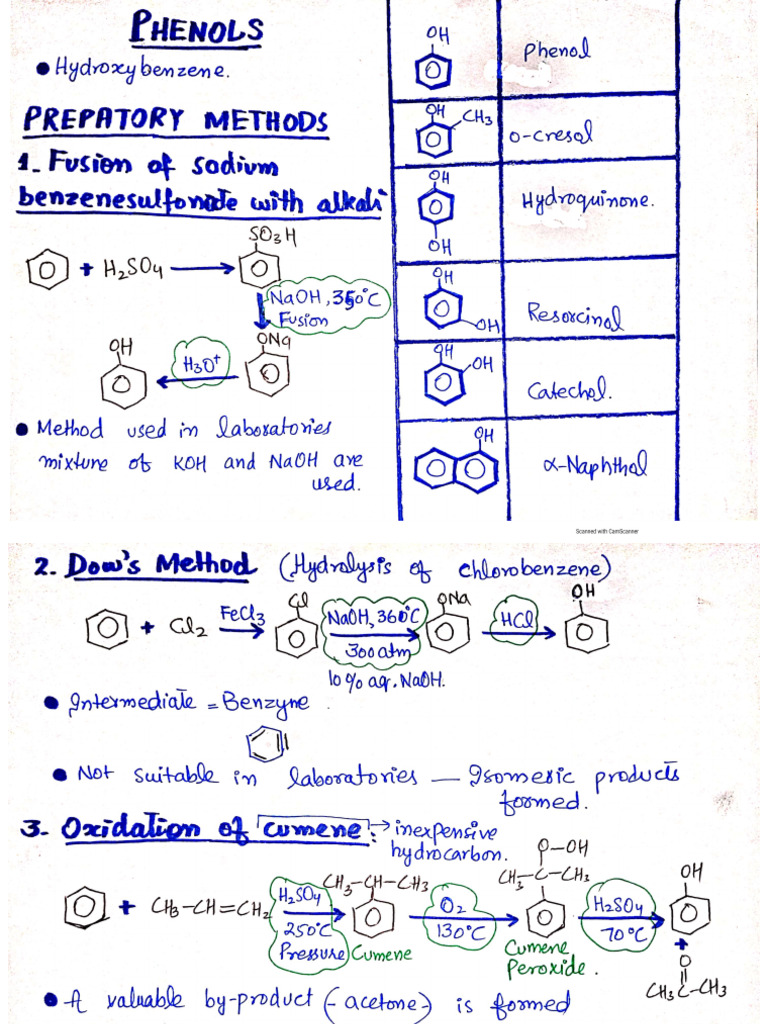 PHENOLS
• Hydroxybenzene.
PREPATORY METHODS
1. Fusion of sodium
benzenesulfonate with alkali
+ H2SO4 →
SO3H
NaOH, 350°C
Fusion
ONa
H3O+
OH
• Method used in laboratories
mixture of KOH and NaOH are
used.
OH
Phenol
OH CH3
o-cresol
OH
OH
Hydroquinone.
OH
OH
Resorcinol
OH
OH
Catechol.
OH
α-Naphthol
Scanned with CamScanner
2. Dow's Method (Hydrolysis of chlorobenzene)
+ Cl2 FeCl3 → Cl NaOH, 360°C → ONa HCl → OH
300 atm
10% aq. NaOH.
• Intermediate = Benzyne.
• Not suitable in laboratories — Isomeric products
formed.
3. Oxidation of cumene: → inexpensive
hydrocarbon.
O-OH
+ CH3-CH=CH2 H2SO4 → CH3-CH-CH3 O2 → CH3-C-CH3 H2SO4 → OH
250°C
Pressure
Cumene
130°C
Cumene
Peroxide.
70°C
+
O
CH3C-CH3
• A valuable by-product (-acetone-) is formed